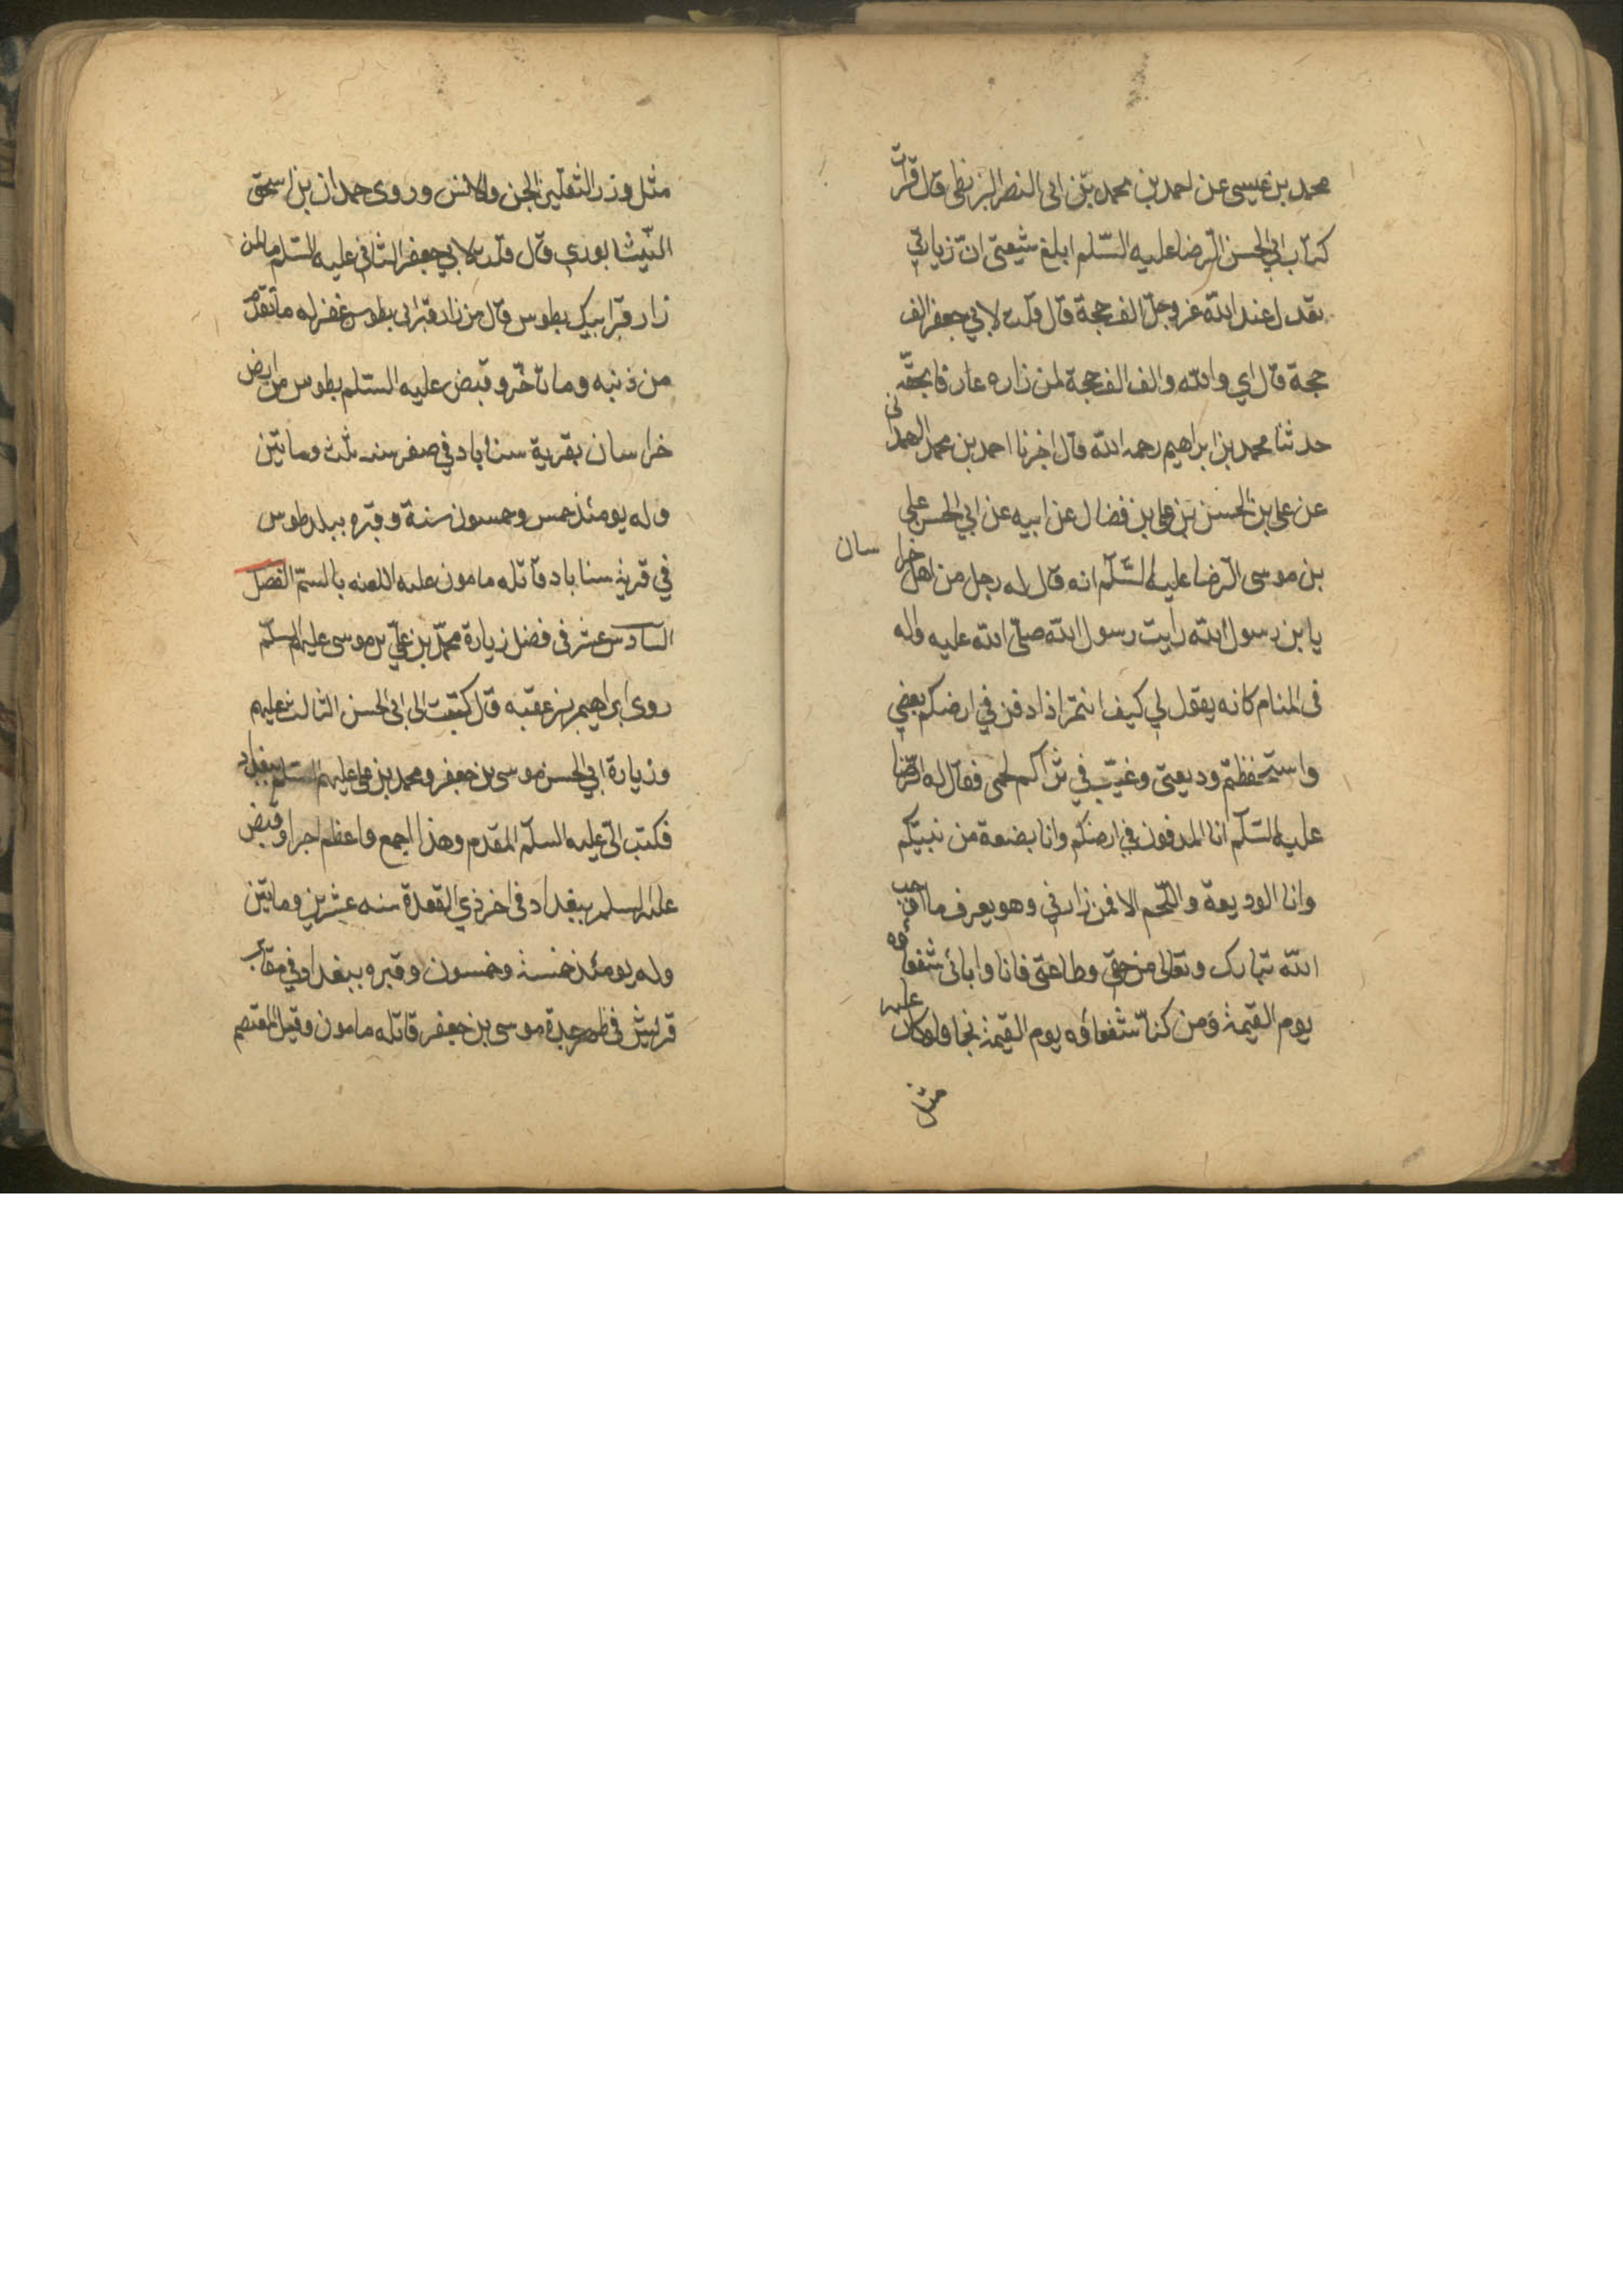 محمد بن عيسى عن احمد بن محمد بن ابى النصر البزنطى قال قرات
كتاب ابي الحسن الرضا عليه السّلم ابلغ شيعتى انّ زيارتي
تعدل عند الله عز وجلّ الف حجة قال قلت لابي جعفر الف
حجة قال اي والله والف الف حجة لمن زاره عارفا بحقّه
حدثنا محمد بن ابراهيم رحمه الله قال اخبرنا احمد بن محمد الهمدانى
عن على بن الحسن بن على بن فضال عن ابيه عن ابي الحسن على
بن موسى الرضا عليه السّلم انه قال له رجل من اهل خراسان
يا بن رسول الله رايت رسول الله صلى الله عليه واله
فى المنام كانه يقول لي كيف انتم اذا دفن في ارضكم بعضي
واستحفظتم وديعتى وغيّب في ثراكم لحمى فقال له الرّضا
عليه السّلم انا المدفون في ارضكم وانا بضعة من نبيّكم
وانا الوديعة واللّحم الا فمن زارني وهو يعرف ما اوجب
الله تبارك وتعالى من حقى وطاعتى فانا وابائى شفعاؤه
يوم القيمة ومن كنّا شفعاؤه يوم القيمة نجا ولو كان عليه
مثل
مثل وزر الثقلين الجن والانس وروى حمدان بن اسحق
النّيشابوري قال قلت لابي جعفر الثاني عليه السّلم ما لمن
زار قبر ابيك بطوس قال من زار قبر ابى بطوس غفر له ما تقدّم
من ذنبه وما تاخّر وقبض عليه السّلم بطوس من ارض
خراسان بقرية سناباد في صفر سنة ثلث ومايتين
وله يومئذ خمس وخمسون سنة وقبره ببلد طوس
في قرية سناباد قاتله مامون عليه اللعنه بالسمّ الفصل
السادس عشر فى فضل زيارة محمّد بن عليّ بن موسى عليهم السلّم
روى ابراهيم بن عقبه قال كتبت الى ابى الحسن الثالث عليهم
وزيارة ابي الحسن موسى بن جعفر ومحمد بن على عليهم السّلم ببغداد
فكتب الىّ عليه السلّم المقدم وهذا اجمع واعظم اجرا وقبض
عليه السلم ببغداد فى اخر ذي القعدة سنه عشرين ومايتين
وله يومئذ خمسة وخمسون وقبره ببغداد في مقابر
قريش فى ظهر جدة موسى بن جعفر قاتله مامون وقيل المعتصم